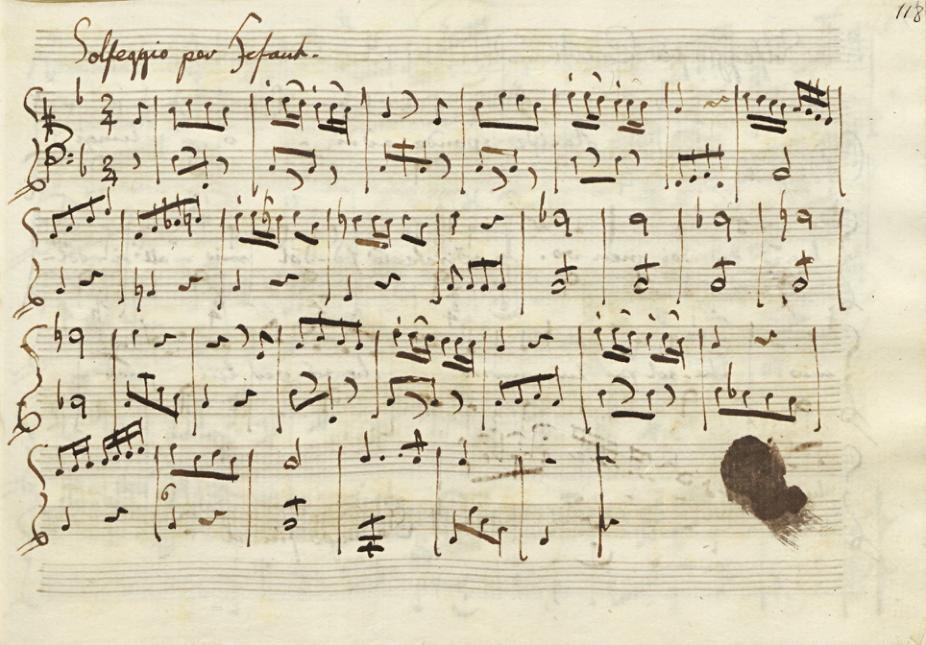 118
Solfeggio per Fefaut.